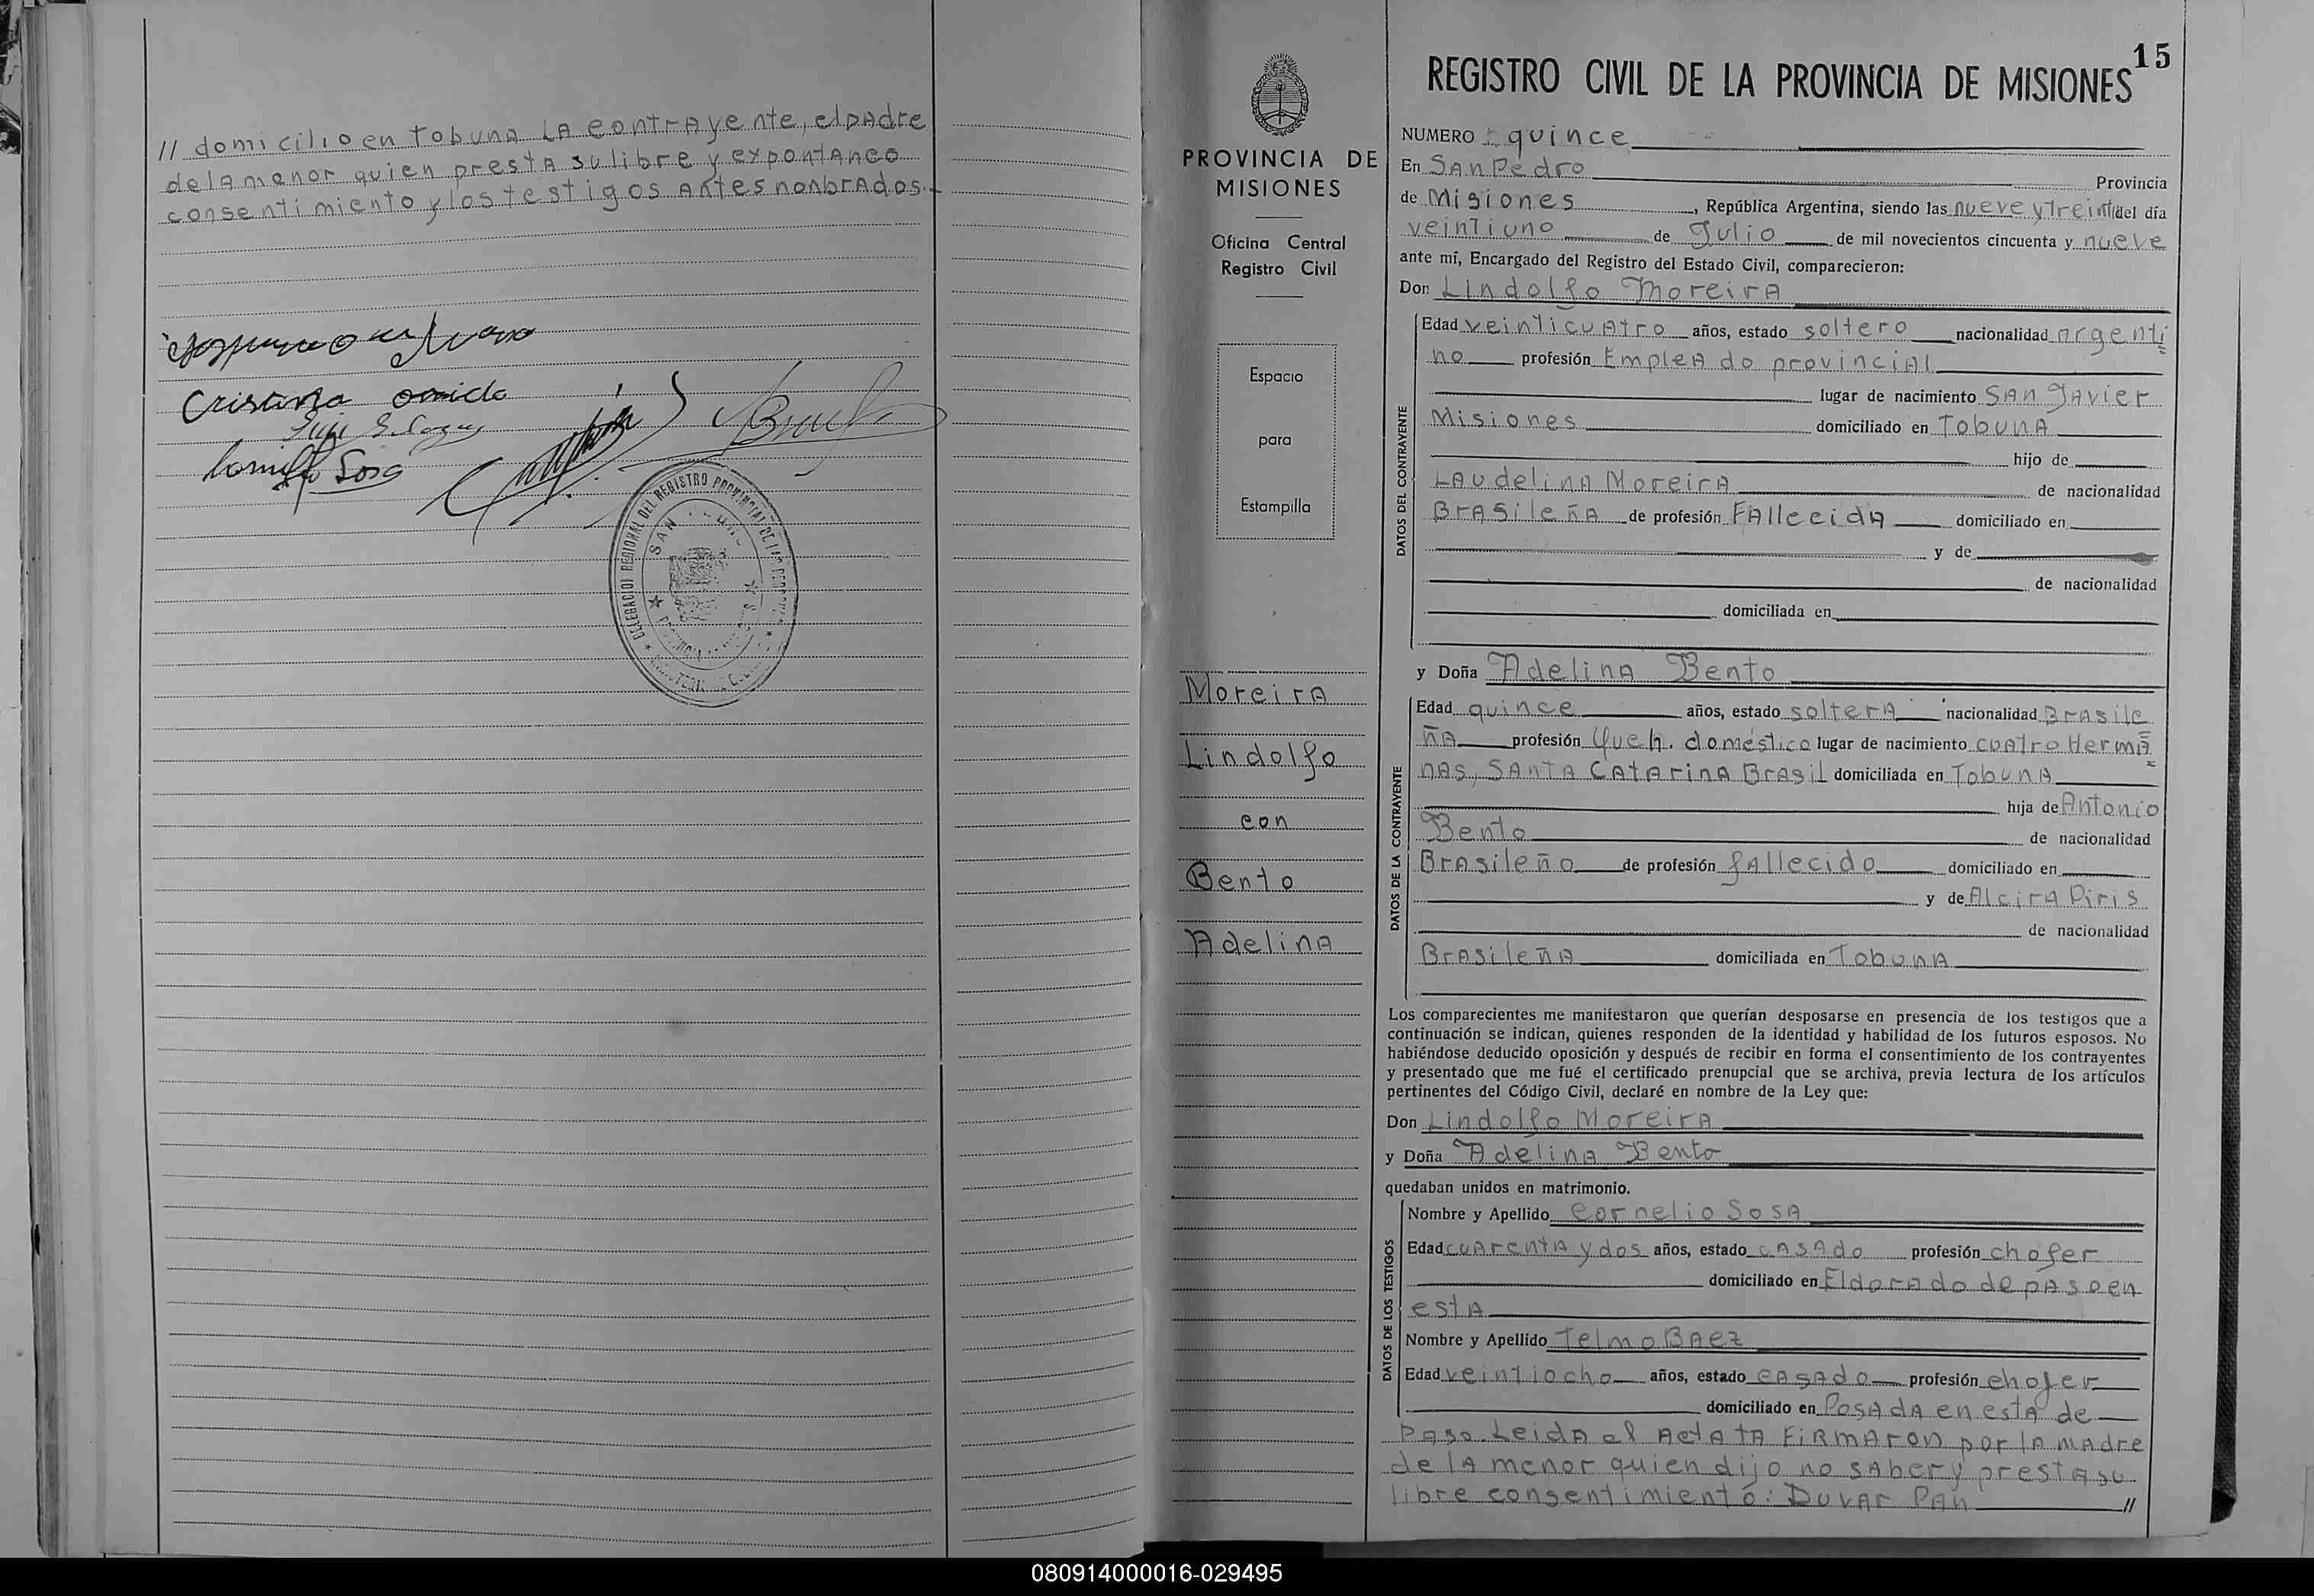 // domicilio en Tobuna LA contrayente, el padre
de la menor quien presta su libre y expontaneo
consentimiento y los testigos antes nonbrados.
Cristina
Sosa
DELEGACION REGIONAL DEL REGISTRO PROVINCIAL DE LAS PERSONAS
SAN PEDRO
PROVINCIA DE
MISIONES
Oficina Central
Registro Civil
Espacio
para
Estampilla
Moreira
Lindolfo
con
Bento
Adelina
15
REGISTRO CIVIL DE LA PROVINCIA DE MISIONES
NUMERO quince
En San Pedro Provincia
de Misiones, República Argentina, siendo las nueve y treinta del día
veintiuno de Julio de mil novecientos cincuenta y nueve
ante mí, Encargado del Registro del Estado Civil, comparecieron:
Don Lindolfo Moreira
DATOS DEL CONTRAYENTE
Edad veinticuatro años, estado soltero nacionalidad argenti
no profesión Empleado provincial
lugar de nacimiento San Javier
Misiones domiciliado en Tobuna
hijo de
Laudelina Moreira de nacionalidad
Brasileña de profesión Fallecida domiciliado en
y de
de nacionalidad
domiciliada en
y Doña Adelina Bento
DATOS DE LA CONTRAYENTE
Edad quince años, estado soltera nacionalidad Brasile
ña profesión Queh. doméstico lugar de nacimiento cuatro Herma
nas, Santa Catarina Brasil domiciliada en Tobuna
hija de Antonio
Bento de nacionalidad
Brasileño de profesión fallecido domiciliado en
y de Alcira Piris
de nacionalidad
Brasileña domiciliada en Tobuna
Los comparecientes me manifestaron que querían desposarse en presencia de los testigos que a
continuación se indican, quienes responden de la identidad y habilidad de los futuros esposos. No
habiéndose deducido oposición y después de recibir en forma el consentimiento de los contrayentes
y presentado que me fué el certificado prenupcial que se archiva, previa lectura de los artículos
pertinentes del Código Civil, declaré en nombre de la Ley que:
Don Lindolfo Moreira
y Doña Adelina Bento
quedaban unidos en matrimonio.
DATOS DE LOS TESTIGOS
Nombre y Apellido Cornelio Sosa
Edad cuarenta y dos años, estado casado profesión chofer
domiciliado en Eldorado de paso en
esta
Nombre y Apellido Telmo Baez
Edad veintiocho años, estado casado profesión chofer
domiciliado en Posada en esta de
paso. Leida el Actata FIRMARON por la madre
de la menor quien dijo no saber y presta su
libre consentimiento: Duvar Pan //
080914000016-029495